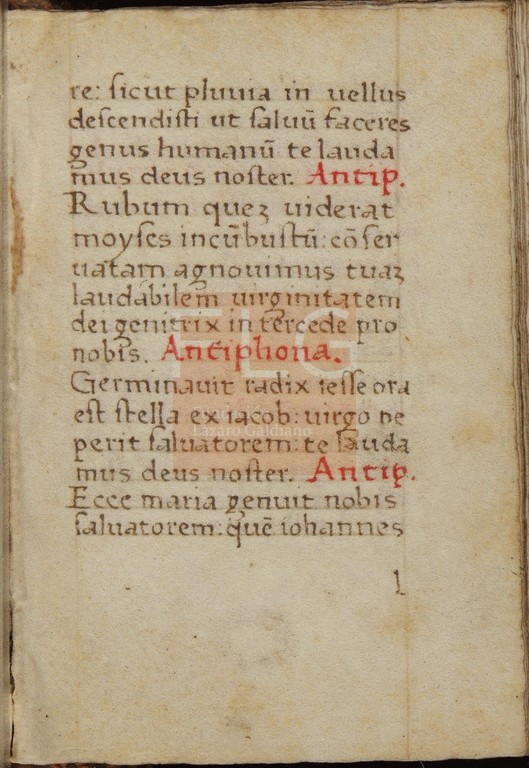 re: sicut pluuia in uellus
descendisti ut saluū faceres
genus humanū te lauda
mus deus noster. Antip.
Rubum queʒ uiderat
moyses incūbustū: cōser
uatam agnouimus tuaʒ
laudabilem uirginitatem
dei genitrix intercede pro
nobis. Antiphona.
Germinauit radix iesse ora
est stella ex iacob: uirgo pe
perit saluatorem: te lauda
mus deus noster. Antip.
Ecce maria genuit nobis
saluatorem: quē iohannes
FLG
Lázaro Galdiano